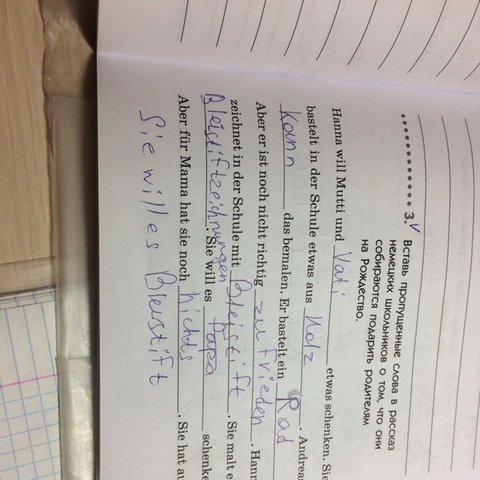 3. V Вставь пропущенные слова в рассказ
немецких школьников о том, что они
собираются подарить родителям
на Рождество.
Hanna will Mutti und Vati etwas schenken. Sie
bastelt in der Schule etwas aus Holz . Andreas
Kann das bemalen. Er bastelt ein Rad
Aber er ist noch nicht richtig zufrieden . Hann
zeichnet in der Schule mit Bleistift . Sie malt e
Bleistiftzeichnungen . Sie will es Papa schenke
Aber für Mama hat sie noch nichts . Sie hat au
Sie will es Bleistift